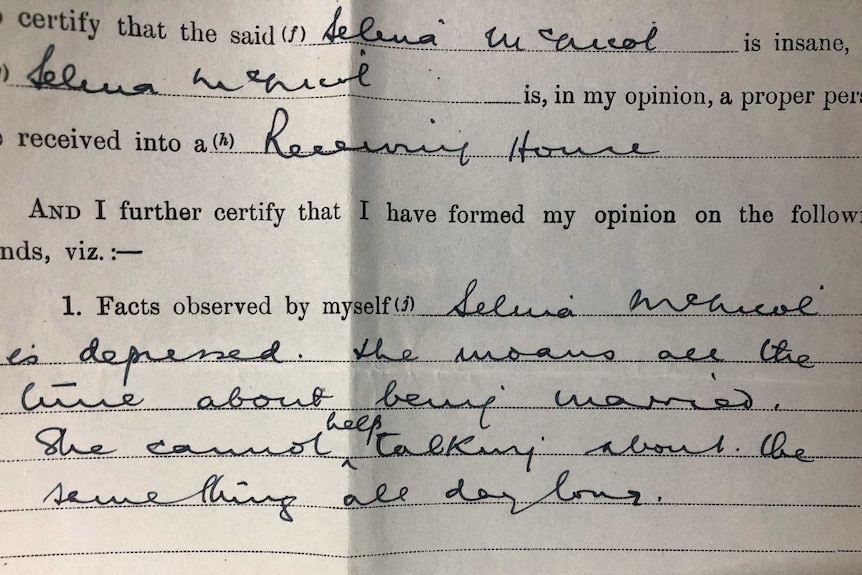 certify that the said (f) Selena McNicol is insane,
) Selena McNicol is, in my opinion, a proper pers
received into a (h) Receiving House
AND I further certify that I have formed my opinion on the followi
nds, viz.:—
1. Facts observed by myself (j) Selena McNicol
is depressed. She moans all the
time about being married.
help
She cannot ^ talking about the
same thing all day long.